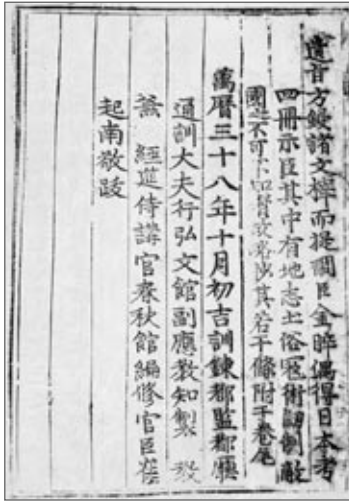 遺旨方鋟諸文梓而提調臣金睟偶得日本考
四冊示臣其中有地志土俗寇術劒制敵
國之不可不知者故略抄其若干條附于卷尾
萬曆三十八年十月初吉訓鍊都監都廳
通訓大夫行弘文館副應敎知製 敎
兼 經筵侍講官春秋館編修官臣崔
起南敬跋